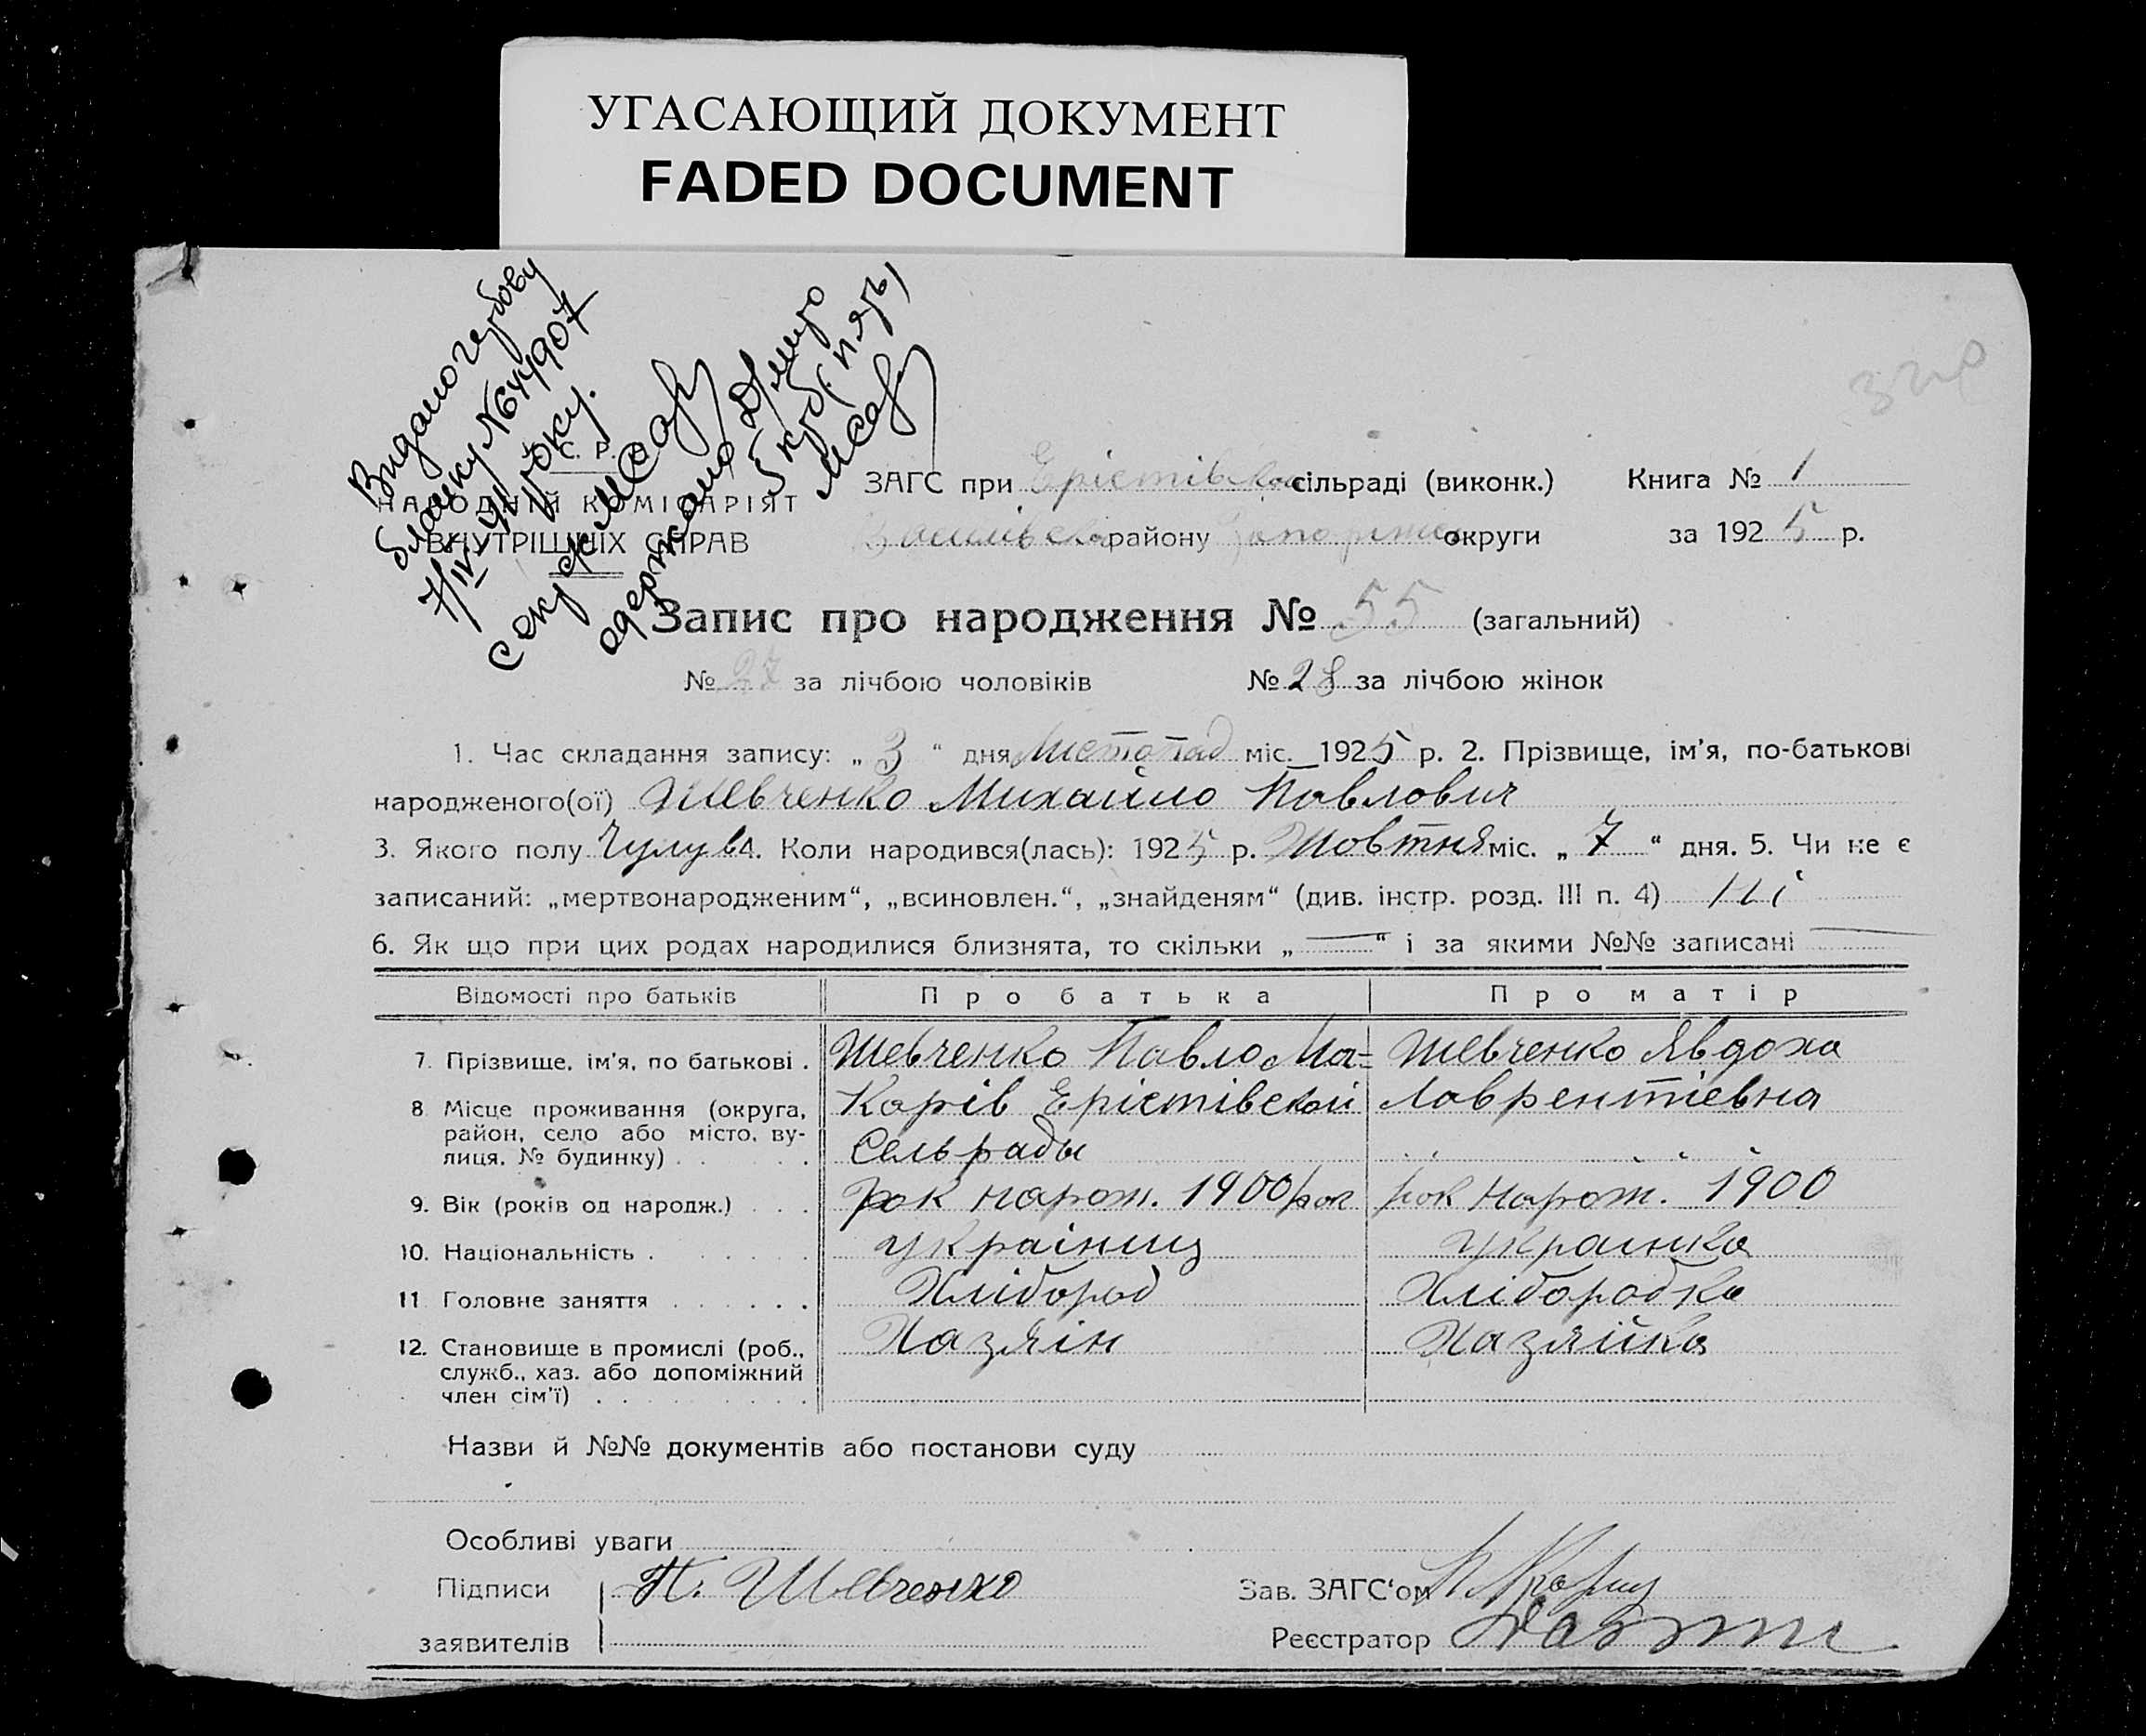 УГАСАЮЩИЙ ДОКУМЕНТ
FADED DOCUMENT
Видано гербову
бланку № 644907
7/IV 41 року.
секр
одержано
5 крб (пять)
С. Р.
НАРОДНІЙ КОМІСАРІЯТ
ВНУТРІШНІХ СПРАВ
ЗАГС при Ерістівскій сільраді (виконк.) Книга № 1
району Запоріжск округи за 1925 р.
Запис про народження № 55 (загальний)
№ 27 за лічбою чоловіків № 28 за лічбою жінок
1. Час складання запису: „ 3 “ дня Листопад міс. 1925 р. 2. Прізвище, ім'я, по-батькові
народженого(ої) Шевченко Михайло Павлович
3. Якого полу 4. Коли народився(лась): 1925 р. Жовтня міс. „ 7 “ дня. 5. Чи не є
записаний: „мертвонародженим“, „всиновлен.“, „знайденям“ (див. інстр. розд. III п. 4) ні
6. Як що при цих родах народилися близнята, то скільки „ — “ і за якими №№ записані —
Відомості про батьків Про батька Про матір
7. Прізвище, ім'я, по батькові . Шевченко Павло Ма= Шевченко Явдоха
8 Місце проживання (округа, Карів Ерістівскій Лаврентіевна
район, село або місто, ву- Сельрады
лиця, № будинку) . . .
9. Вік (років од народж.) . . . рок народж. 1900 рок рок народж. 1900
10. Національність . . . . . украінец украинка
11 Головне заняття . . . . . . Хлібород Хлібородка
12. Становище в промислі (роб., Хазяін Хазяйка
служб., хаз. або допоміжний
член сім'ї) . . . . . . . .
Назви й №№ документів або постанови суду
Особливі уваги
Підписи П. Шевченко Зав. ЗАГС'ом
заявителів Реєстратор